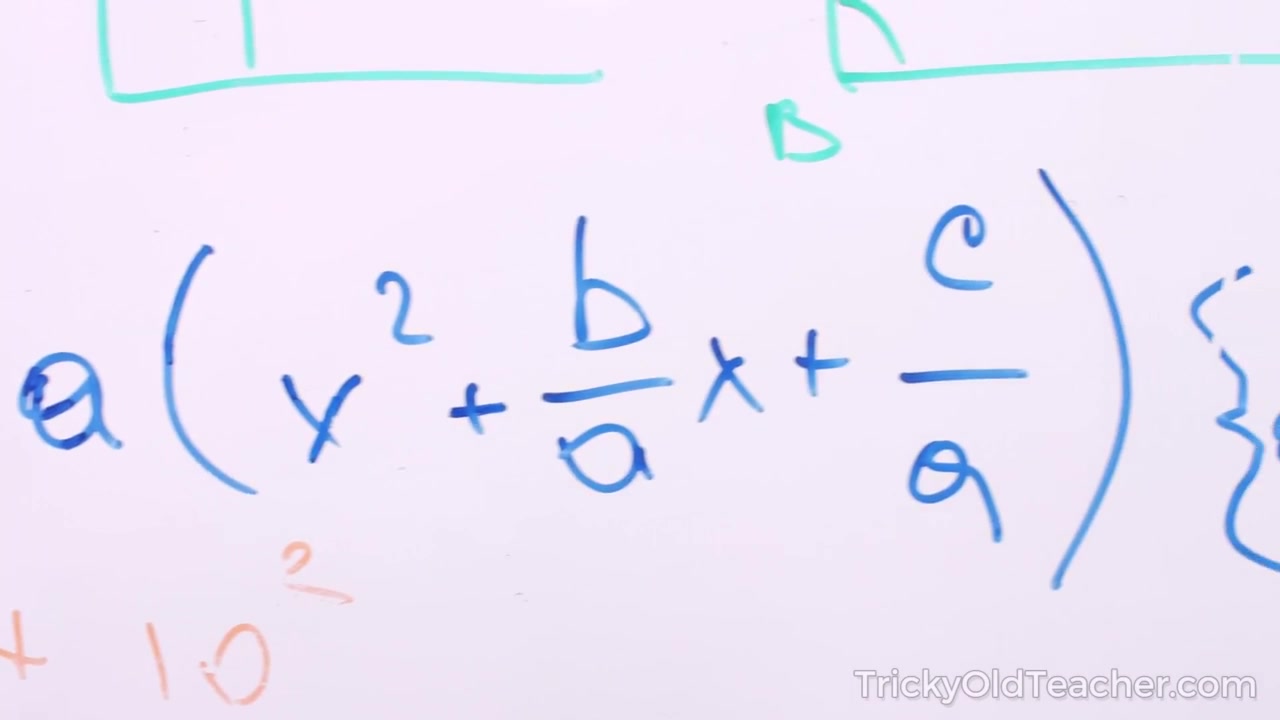 B
a(x² + b/a x + c/a) {
+ 10²
TrickyOldTeacher.com